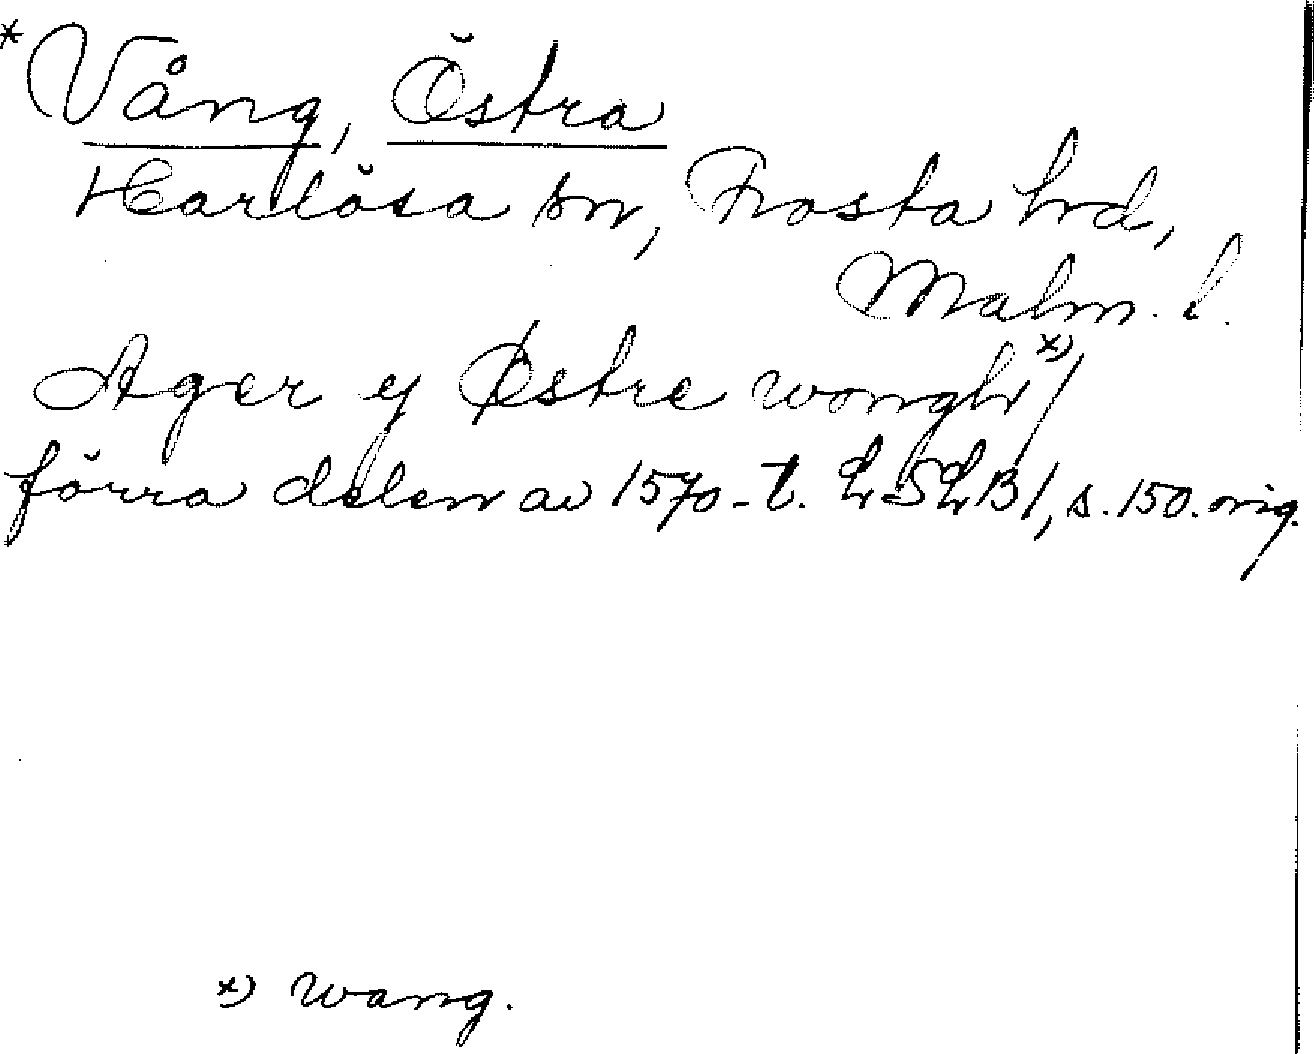 *Vång, Östra
Harlösa sn, Frosta hrd,
Malm. l.
Ager y Østre wongh *)/
förra delen av 1570-t. LSLB1, s. 150. orig.
*) wang.